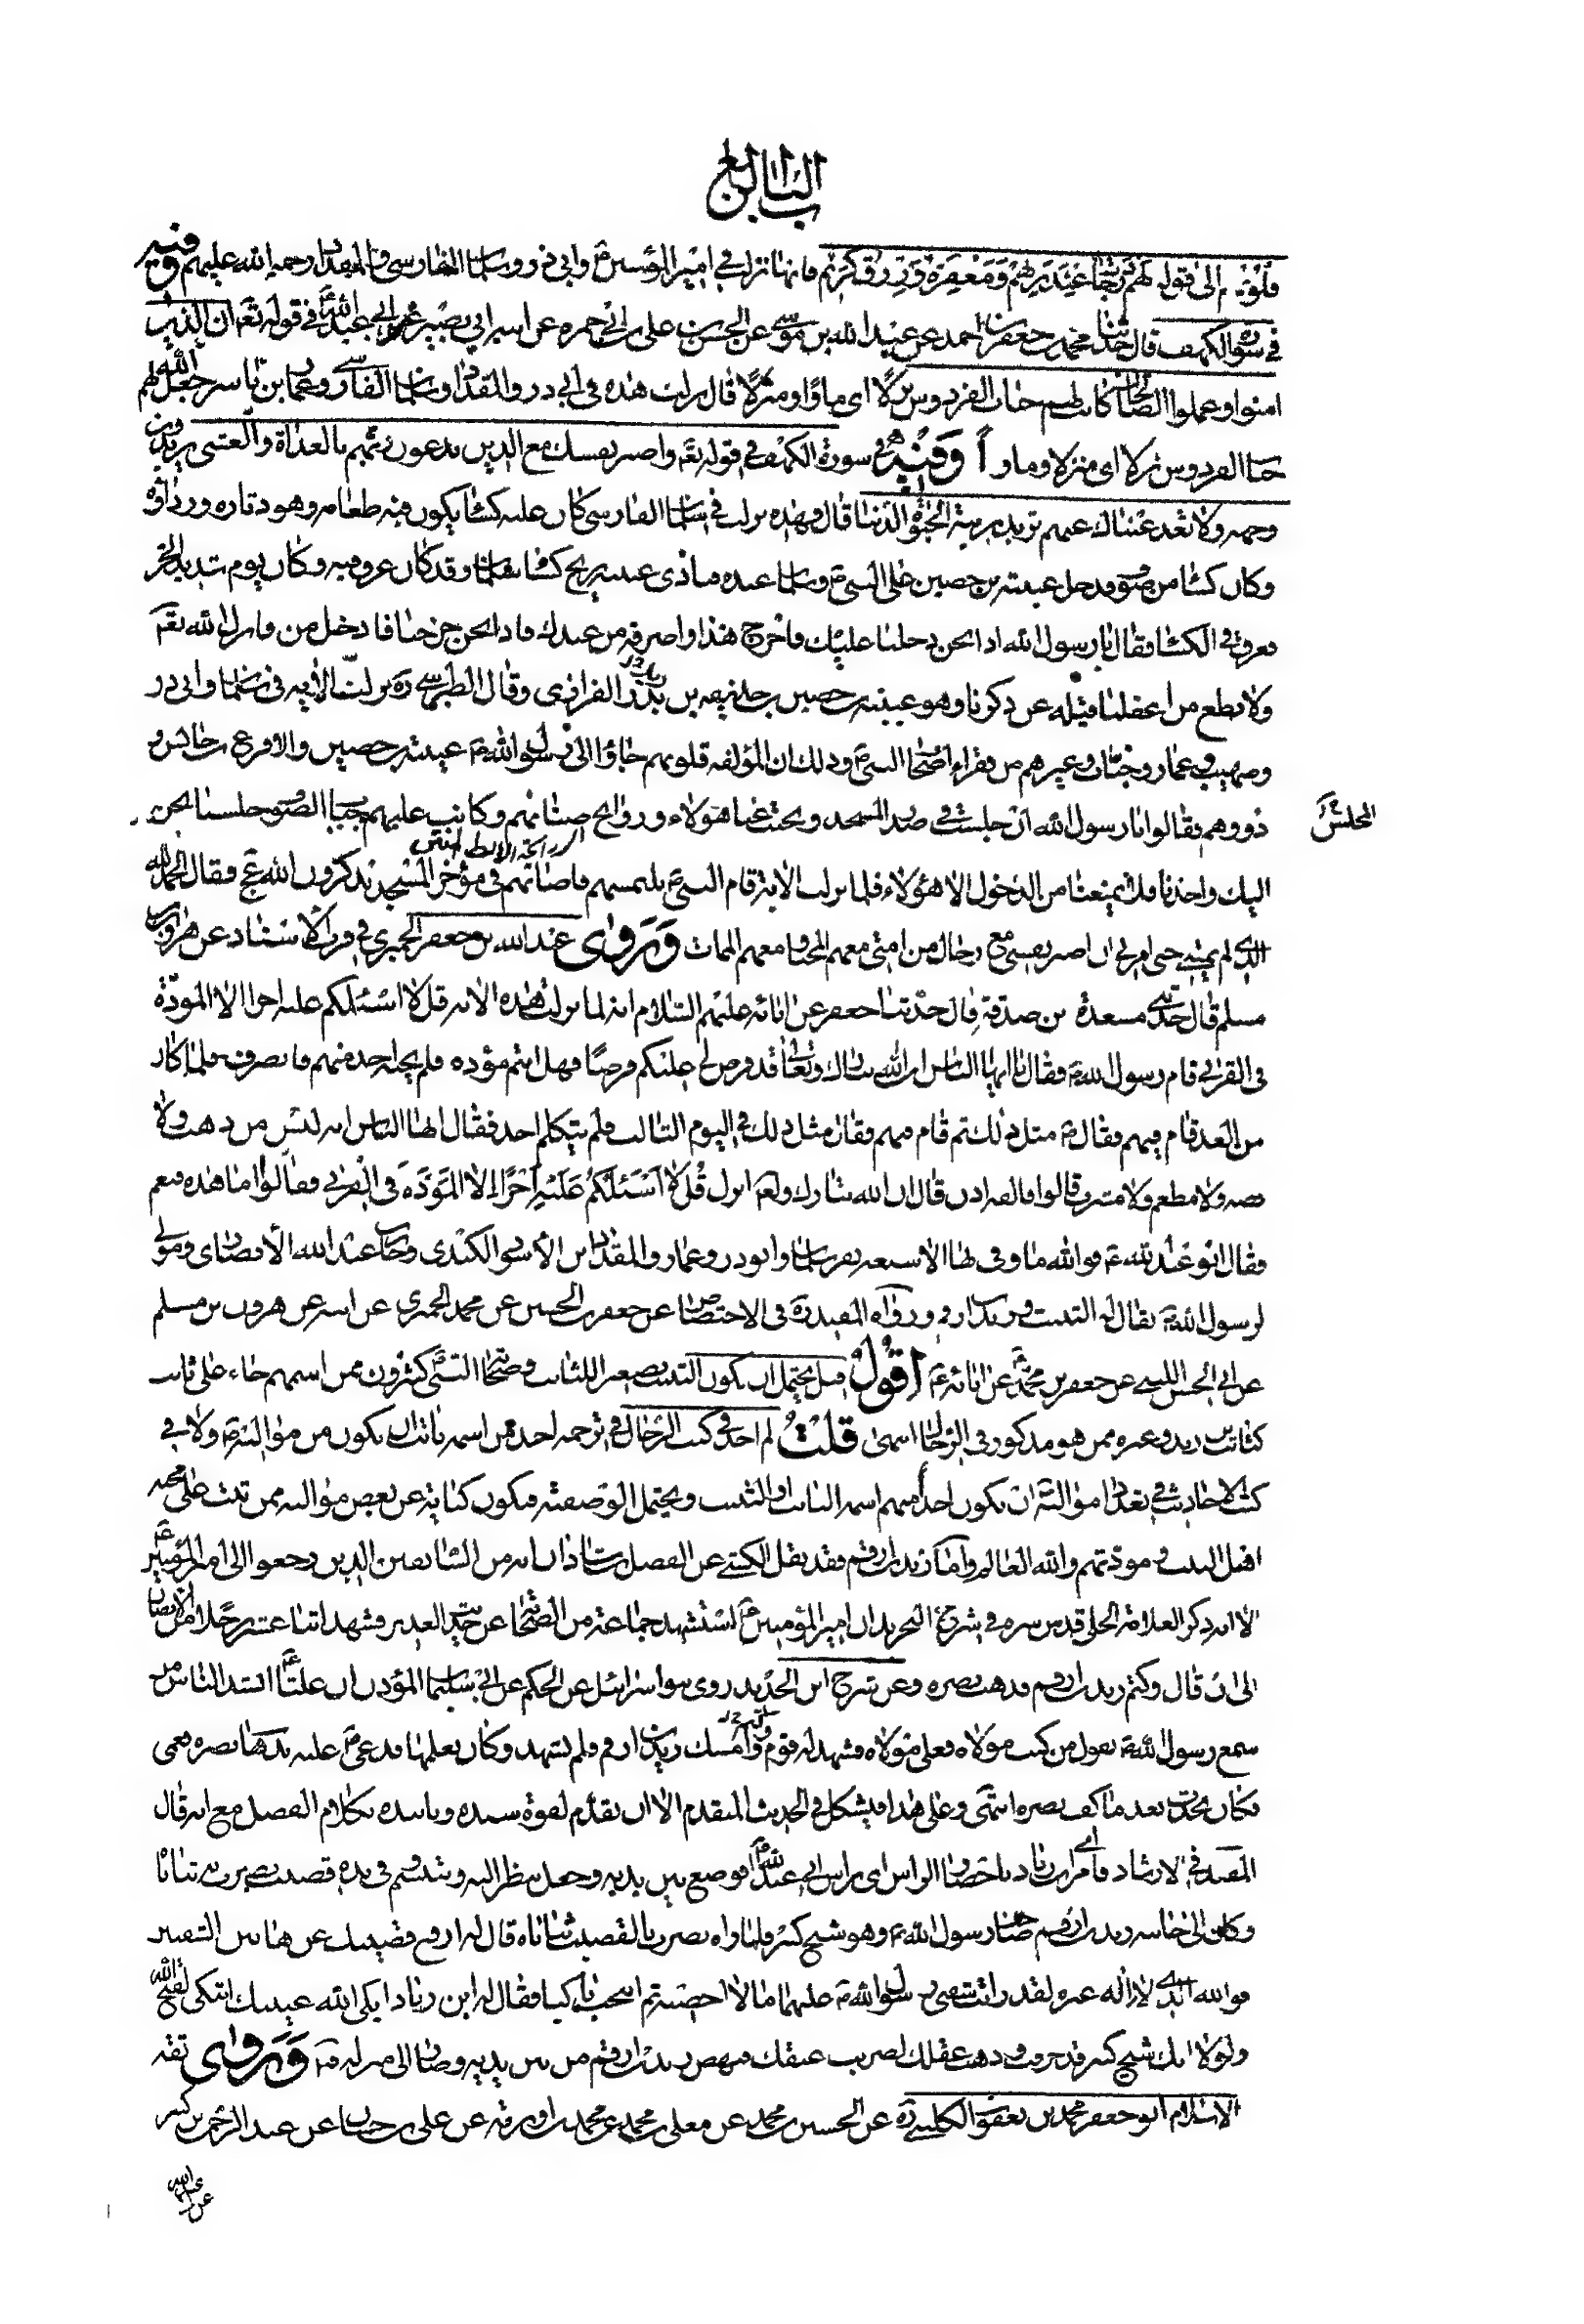 الباب الرابع
قلوبهم الى قوله لهم درجات عند ربهم ومغفرة ورزق كريم فانها نزلت في امير المؤمنين ع وابي ذر وسلمان الفارسي والمقداد رحمة الله عليهم وفيه
في سورة الكهف قال حدثنا محمد بن جعفر بن احمد عن عبيد الله بن موسى عن الحسن بن علي بن ابي حمزه عن ابيه عن ابي بصير عن ابي عبد الله ع في قوله تعم ان الذين
امنوا وعملوا الصالحات كانت لهم جنات الفردوس نزلا اى ماوا ومنزلا قال نزلت هذه فى ابي ذر والمقداد وسلمان الفارسى وعمار بن ياسر جعل الله لهم
جنات الفردوس نزلا اى منزلا وماوا وفيه في سورة الكهف في قوله تعم واصبر نفسك مع الذين يدعون ربهم بالغداة والعشى يريدون
وجهه ولا تعد عيناك عنهم تريد زينة الحيوة الدنيا قال وهذه نزلت فى سلمان الفارسى كان عليه كساء يكون فيه طعامه وهو دثاره ورداؤه
وكان كساء من صوف فدخل عيينة بن حصين على النبى ص وسلمان عنده فتاذى عيينة بريح كساء سلمان وقد كان عرق فيه وكان يوم شديد الحر
فعرق فى الكساء فقال يا رسول الله اذا نحن دخلنا عليك فاخرج هذا واصرفه من عندك فاذا نحن خرجنا فادخل من فانزل الله تعم
ولا تطع من اغفلنا قلبه عن ذكرنا وهو عيينة بن حصين بن حذيفه بن بدر الفزارى وقال الطبرسى ره نزلت الايه فى سلمان وابى ذر
وصهيب وعمار وخباب وغيرهم من فقراء اصحاب النبى ص وذلك ان المؤلفه قلوبهم جاؤا الى رسول الله ص عيينة بن حصين والاقرع بن حابس و
ذووهم فقالوا يا رسول الله ان جلست فى صدر المسجد ونحيت عنا هؤلاء وروائح صنانهم وكانت عليهم جباب الصوف جلسنا نحن
المجلس
اليك واخذنا فلا يمنعنا من الدخول الا هؤلاء فلما نزلت الاية قام النبى ص يلتمسهم فاصابهم فى مؤخر المسجد يذكرون الله عج فقال الحمد لله
الذى لم يمتنى حتى امرنى ان اصبر نفسى مع رجال من امتى معهم المحيا ومعهم الممات وروى عبد الله بن جعفر الحميرى فى قرب الاسناد عن هارون بن
مسلم قال حدثنى مسعدة بن صدقة قال حدثنا جعفر عن ابائه عليهم السلام انه لما نزلت هذه الايه قل لا اسئلكم عليه اجرا الا المودة
فى القربى قام رسول الله ص فقال يا ايها الناس ان الله تبارك وتعالى قد فرض لى عليكم فرضا فهل انتم مؤدوه فلم يجبه احد منهم فانصرف فلما كان
من الغد قام فيهم فقال ص مثل ذلك ثم قام فيهم فقال مثل ذلك فى اليوم الثالث فلم يتكلم احد فقال ايها الناس انه ليس من ذهب ولا
فضه ولا مطعم ولا مشرب قالوا فالقه اذن قال ان الله تبارك وتعم انزل قل لا اسئلكم عليه اجرا الا المودة فى القربى فقالوا اما هذه فنعم
فقال ابو عبد الله ع فو الله ما وفى لها الا سبعه نفر سلمان وابو ذر وعمار والمقداد بن الاسود الكندى وجابر بن عبد الله الانصارى ومولى
لرسول الله ص يقال له الثبيت وزيد بن ارقم ورواه المفيد ره فى الاختصاص عن جعفر بن الحسين عن محمد الحميرى عن ابيه عن هرون بن مسلم
عن ابى الحسن الليثى عن جعفر بن محمد ع عن ابائه ع اقول قيل يحتمل ان يكون الثبيت مصغر الثابت وصحابة النبى ص كثيرون ممن اسمهم جاء على ثابت
كثابت بن زيد وغيره ممن هو مذكور فى الرجال انتهى قلت لم اجد فى كتب الرجال فى ترجمه احد ممن اسمه ثابت ان يكون من مواليه ص ولا فى
كتب الاحاديث فى تعداد مواليه ان يكون احد منهم اسمه الثابت او الثبيت ويحتمل الوصفيه فيكون كناية عن بعض مواليه ممن ثبت على محبه
اهل البيت ومودتهم والله العالم واما زيد بن ارقم فقد نقل الكشى عن الفضل بن شاذان انه من السابقين الذين رجعوا الى امير المؤمنين ع
الا انه ذكر العلامة الحلى قدس سره فى شرح التجريد ان امير المؤمنين ع استشهد جماعة من الصحابة عن حديث الغدير فشهد اثنا عشر رجلا من الانصار
الى ان قال وكتم زيد بن ارقم فذهب بصره وعن شرح ابن ابى الحديد روى ابو اسرائيل عن الحكم عن ابى سليمان المؤذن ان عليا ع انشد الناس من
سمع رسول الله ص يقول من كنت مولاه فعلى مولاه فشهد له قوم وامسك زيد بن ارقم فلم يشهد وكان يعلمها فدعى ع عليه بذهاب بصره فعمى
فكان يحدث بعد ما كف بصره انتهى وعلى هذا فيشكل فى الحديث المتقدم الا ان يقدم لقوة سنده وتاييده بكلام الفضل مع انه قال
المفيد فى الارشاد فامر ابن زياد باحضار الراس اى راس ابى عبد الله ع فوضع بين يديه وجعل ينظر اليه ويتبسم وفى يده قضيب يضرب به ثناياه
وكان الى جانبه زيد بن ارقم صاحب رسول الله ص وهو شيخ كبير فلما راه يضرب بالقضيب ثناياه قال له ارفع قضيبك عن هاتين الشفتين
فو الله الذى لا اله غيره لقد رايت شفتى رسول الله ص عليهما ما لا احصيه ثم انتحب باكيا فقال له ابن زياد ابكى الله عينيك اتبكى لفتح الله
ولولا انك شيخ كبير قد خرفت وذهب عقلك لضربت عنقك فنهض زيد بن ارقم من بين يديه وصار الى منزله وروى ثقه
الاسلام ابو جعفر محمد بن يعقوب الكلينى ره عن الحسين بن محمد عن معلى بن محمد عن محمد بن اورمه عن على بن حسان عن عبد الرحمن بن كثير
عن ابى عبد الله